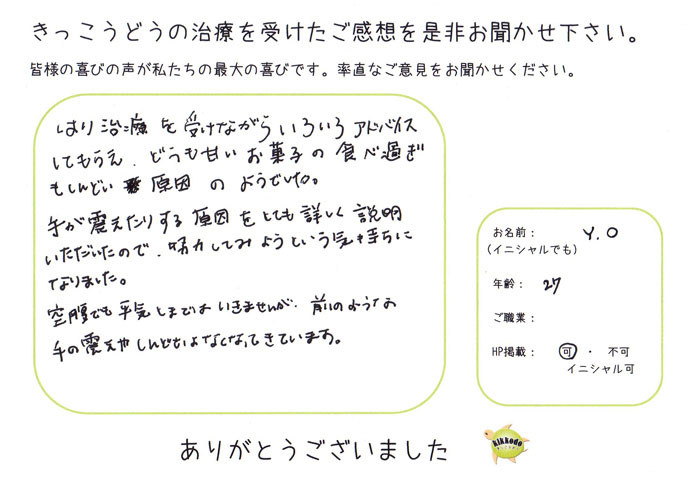 きっこうどうの治療を受けたご感想を是非お聞かせ下さい。
皆様の喜びの声が私たちの最大の喜びです。率直なご意見をお聞かせください。
はり治療を受けながらいろいろアドバイス
してもらえ、どうも甘いお菓子の食べ過ぎ
もしんどい原因のようでした。
手が震えたりする原因をとても詳しく説明
いただいたので、努力してみようという気持ちに
なりました。
空腹でも平気とまではいきませんが、前のような
手の震えやしんどさはなくなってきています。
お名前： Y.O
(イニシャルでも)
年齢： 27
ご職業：
HP掲載： 可 ・ 不可
イニシャル可
ありがとうございました
kikkodo